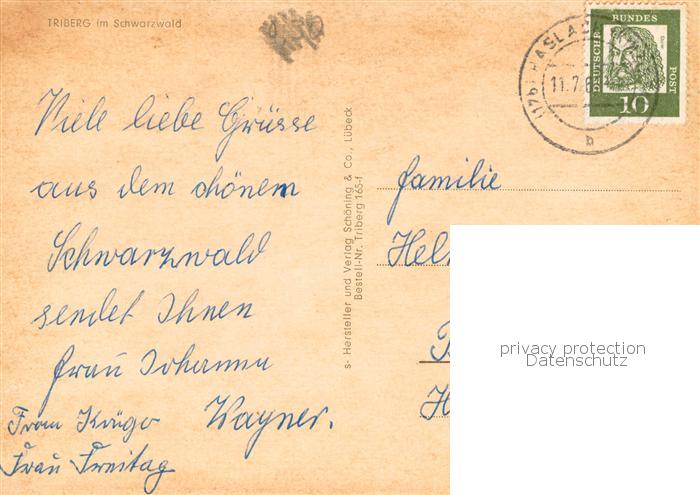 TRIBERG im Schwarzwald
Viele liebe Grüsse
aus dem chönem
Schwarzwald
sendet Ihnen
Frau Johanna
Wagner.
Frau
Frau Freitag
s- Hersteller und Verlag Schöning & Co., Lübeck
Bestell-Nr. Triberg 165-f
DEUTSCHE BUNDES POST
10
(17b) HASLACH
11.7.
b
familie
Hel
privacy protection
Datenschutz